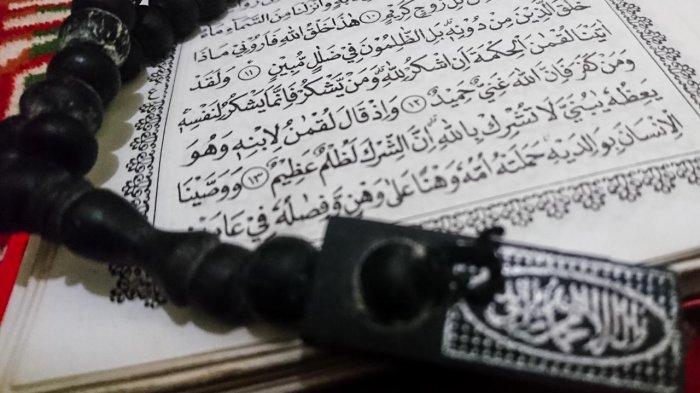 وَاَنْزَلْنَا مِنَ السَّمَاۤءِ مَاۤءً
كُلِّ زَوْجٍ كَرِيْمٍ ۝١٠ هٰذَا خَلْقُ اللّٰهِ فَاَرُوْنِيْ مَاذَا
خَلَقَ الَّذِيْنَ مِنْ دُوْنِهٖ بَلِ الظّٰلِمُوْنَ فِيْ ضَلٰلٍ مُّبِيْنٍ ۝١١ وَلَقَدْ
اٰتَيْنَا لُقْمٰنَ الْحِكْمَةَ اَنِ اشْكُرْ لِلّٰهِ وَمَنْ يَّشْكُرْ فَاِنَّمَا يَشْكُرُ لِنَفْسِهٖ
وَمَنْ كَفَرَ فَاِنَّ اللّٰهَ غَنِيٌّ حَمِيْدٌ ۝١٢ وَاِذْ قَالَ لُقْمٰنُ لِابْنِهٖ وَهُوَ
يَعِظُهٗ يٰبُنَيَّ لَا تُشْرِكْ بِاللّٰهِ اِنَّ الشِّرْكَ لَظُلْمٌ عَظِيْمٌ ۝١٣ وَوَصَّيْنَا
الْاِنْسَانَ بِوَالِدَيْهِ حَمَلَتْهُ اُمُّهٗ وَهْنًا عَلٰى وَهْنٍ وَّفِصَالُهٗ فِيْ عَامَيْنِ